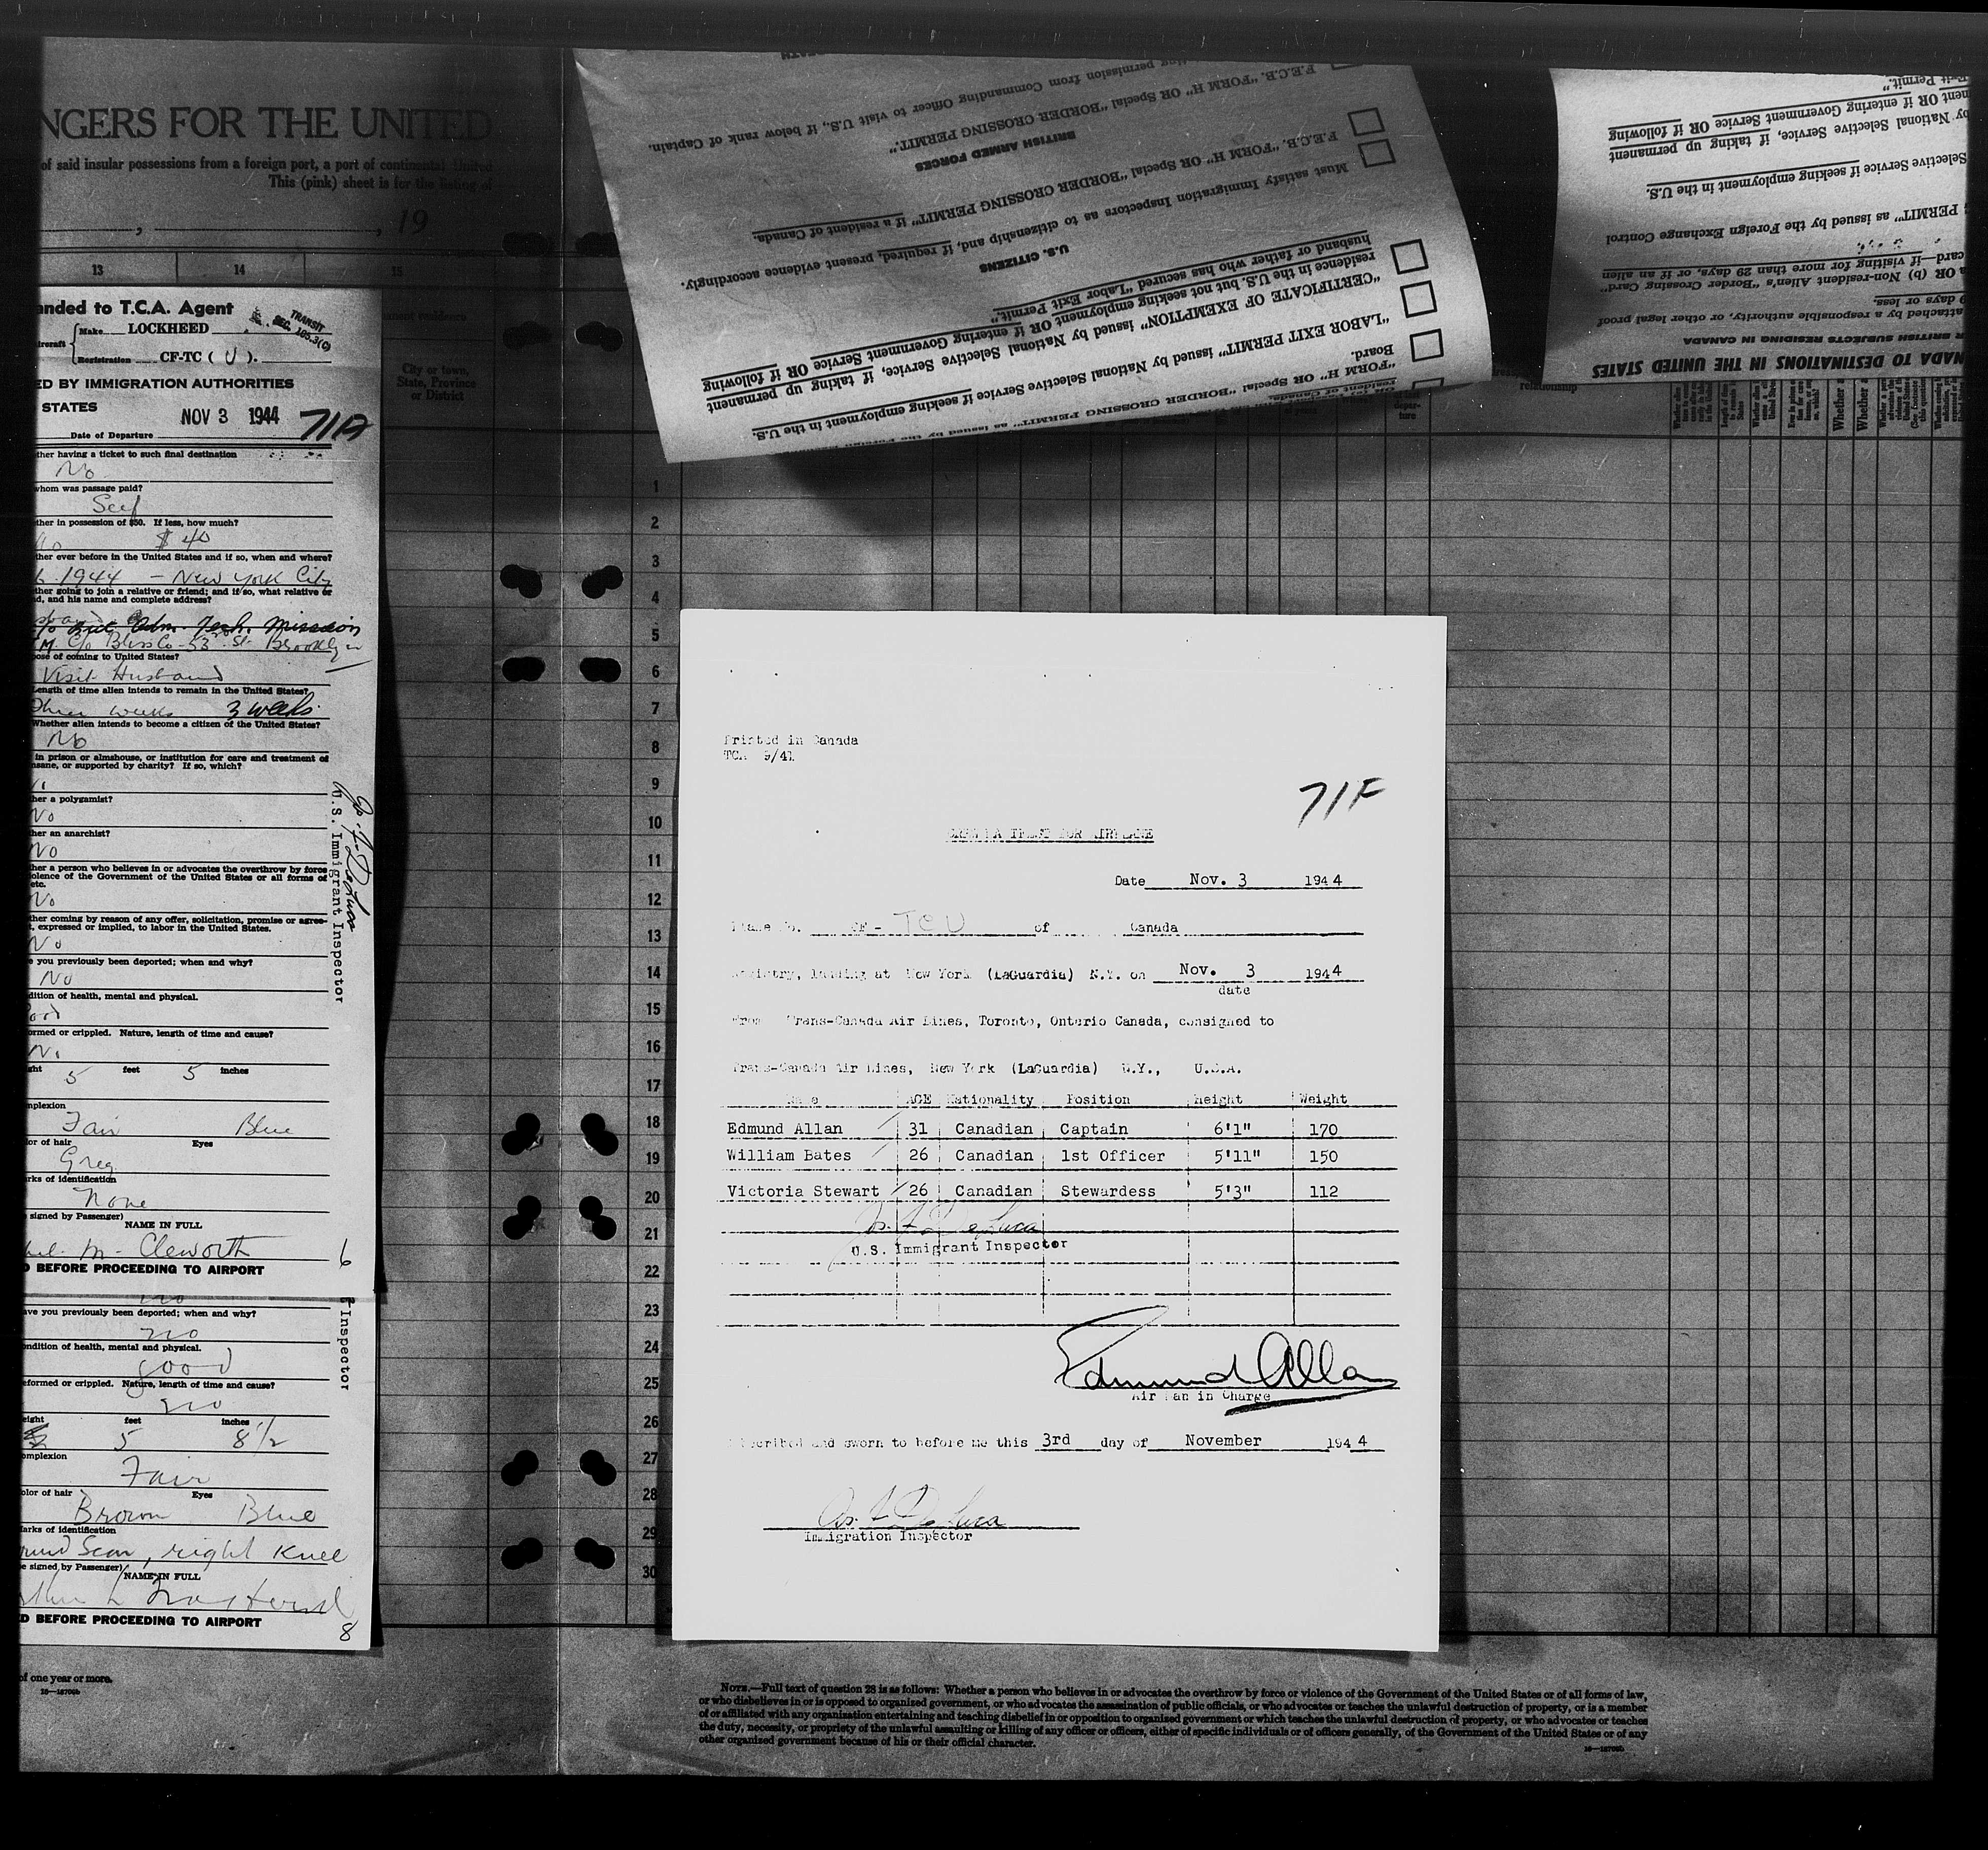 NGERS FOR THE UNITED
of said insular possessions from a foreign port, a port of continental United
This (pink) sheet is for the listing of
, , 19
13 14 15
anded to T.C.A. Agent
TRANSIT
SEC. 165.3(C)
ircraft Make LOCKHEED
Registration CF-TC ( U ).
ED BY IMMIGRATION AUTHORITIES
STATES
NOV 3 1944
71A
Date of Departure
ther having a ticket to such final destination
No
whom was passage paid?
Self
ther in possession of $50. If less, how much?
No $ 40
ther ever before in the United States and if so, when and where?
1944 - New York City
ther going to join a relative or friend; and if so, what relative or
d, and his name and complete address?
Adm. Tech. Mission
C/o Bliss Co - 53rd St. Brooklyn
ose of coming to United States?
Visit Husband
Length of time alien intends to remain in the United States?
Three weeks 3 weeks
Whether alien intends to become a citizen of the United States?
No
in prison or almshouse, or institution for care and treatment of
nsane, or supported by charity? If so, which?
her a polygamist?
No
her an anarchist?
No
her a person who believes in or advocates the overthrow by force
olence of the Government of the United States or all forms of
etc.
No
ther coming by reason of any offer, solicitation, promise or agree-
t, expressed or implied, to labor in the United States.
No
e you previously been deported; when and why?
No
dition of health, mental and physical.
ood
ormed or crippled. Nature, length of time and cause?
No
ght 5 feet 5 inches
mplexion
Fair Blue
lor of hair Eyes
Grey
rks of identification
None
signed by Passenger)
NAME IN FULL
M. Cleworth
6
D BEFORE PROCEEDING TO AIRPORT
U.S. Immigrant Inspector
no
ave you previously been deported; when and why?
no
ondition of health, mental and physical.
good
eformed or crippled. Nature, length of time and cause?
no
eight feet inches
5 8 1/2
omplexion
Fair
olor of hair Eyes
Brown Blue
Marks of identification
Scar, right Knee
e signed by Passenger)
NAME IN FULL
D BEFORE PROCEEDING TO AIRPORT
8
Inspector
of one year or more.
16—18706b
City or town,
State, Province
or District
ting permission from Commanding Officer to visit U.S., if below rank of Captain.
F.E.C.B. "FORM H" OR Special "BORDER CROSSING PERMIT."
BRITISH ARMED FORCES
F.E.C.B. "FORM H" OR Special "BORDER CROSSING PERMIT" if a resident of Canada.
Must satisfy Immigration Inspectors as to citizenship and, if required, present evidence accordingly.
U.S. CITIZENS
husband or father who has secured "Labor Exit Permit."
residence in the U.S. but not seeking employment OR if entering Government Service OR if following
"CERTIFICATE OF EXEMPTION" issued by National Selective Service, if taking up permanent
"LABOR EXIT PERMIT" issued by National Selective Service if seeking employment in the U.S.
Board.
"FORM H" OR Special "BORDER CROSSING PERMIT" as issued by the Foreign
xit Permit."
ment OR if entering Government Service OR if following
by National Selective Service, if taking up permanent
Selective Service if seeking employment in the U.S.
PERMIT" as issued by the Foreign Exchange Control
card—if visiting for more than 29 days, or if an alien
OR (b) Non-resident Alien's "Border Crossing Card"
9 days or less.
attached by a responsible authority, or other legal proof
R BRITISH SUBJECTS RESIDING IN CANADA
NADA TO DESTINATIONS IN THE UNITED STATES
relationship
1
2
3
4
5
6
7
8
9
10
11
12
13
14
15
16
17
18
19
20
21
22
23
24
25
26
27
28
29
30
Printed in Canada
TCA 9/41
71F
CREW MANIFEST FOR AIRPLANE
Date Nov. 3 1944
Plane No. CF - TCU of Canada
Registry, landing at New York (LaGuardia) N.Y. on Nov. 3 1944
date
From Trans-Canada Air Lines, Toronto, Ontario Canada, consigned to
Trans-Canada Air Lines, New York (LaGuardia) N.Y., U.S.A.
Name AGE Nationality Position Height Weight
Edmund Allan 31 Canadian Captain 6'1" 170
William Bates 26 Canadian 1st Officer 5'11" 150
Victoria Stewart 26 Canadian Stewardess 5'3" 112
Jos. F. DeLuca
U.S. Immigrant Inspector
Edmund Allan
Air Man in Charge
Subscribed and sworn to before me this 3rd day of November 1944
Jos. F. DeLuca
Immigration Inspector
NOTE.—Full text of question 28 is as follows: Whether a person who believes in or advocates the overthrow by force or violence of the Government of the United States or of all forms of law,
or who disbelieves in or is opposed to organized government, or who advocates the assassination of public officials, or who advocates or teaches the unlawful destruction of property, or is a member
of or affiliated with any organization entertaining and teaching disbelief in or opposition to organized government or which teaches the unlawful destruction of property, or who advocates or teaches
the duty, necessity, or propriety of the unlawful assaulting or killing of any officer or officers, either of specific individuals or of officers generally, of the Government of the United States or of any
other organized government because of his or their official character.
16—18706b